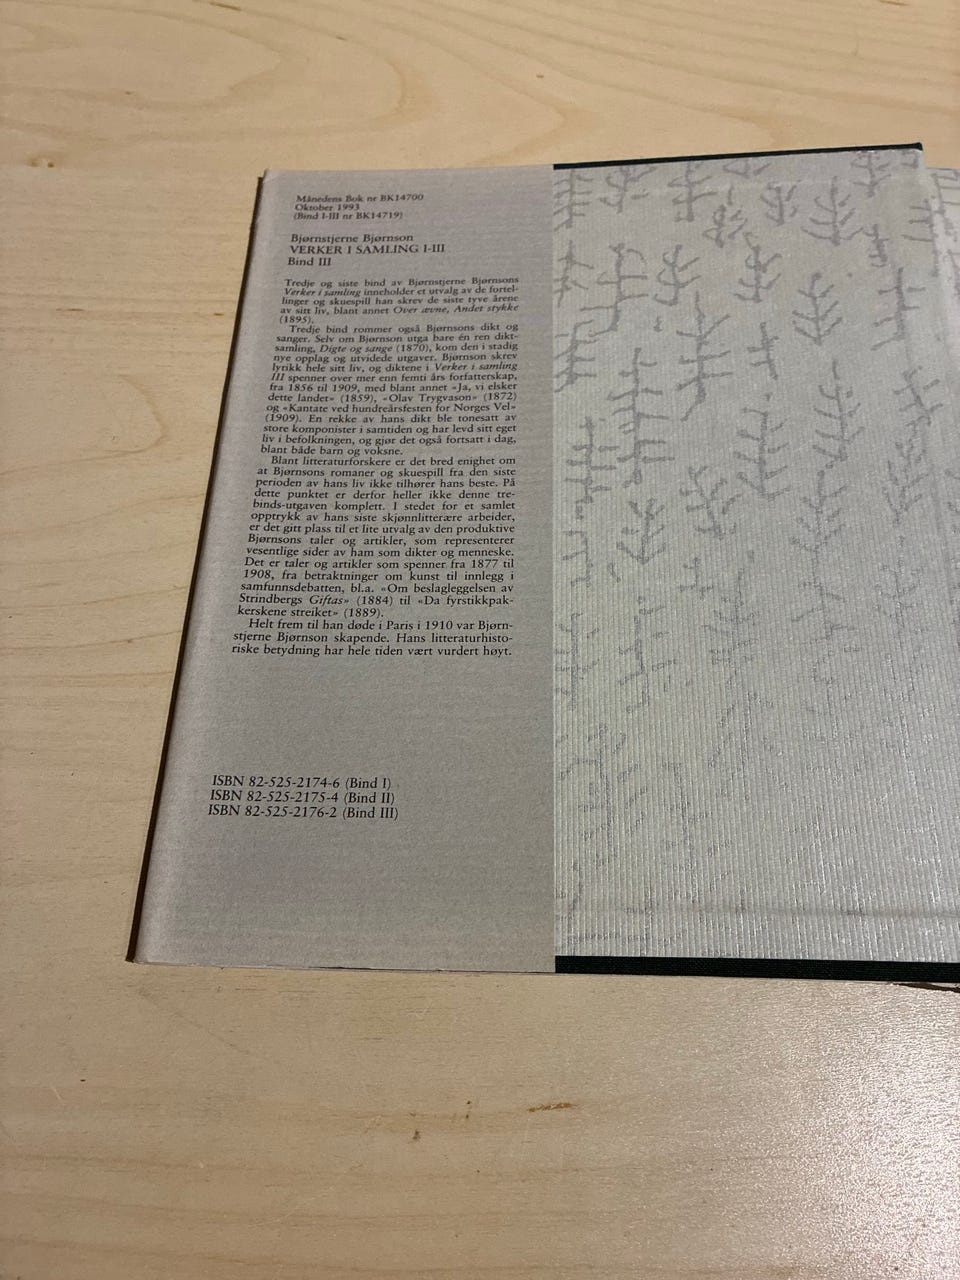 Månedens Bok nr BK14700
Oktober 1993
(Bind I-III nr BK14719)
Bjørnstjerne Bjørnson
VERKER I SAMLING I-III
Bind III
Tredje og siste bind av Bjørnstjerne Bjørnsons
Verker i samling inneholder et utvalg av de fortel-
linger og skuespill han skrev de siste tyve årene
av sitt liv, blant annet Over ævne, Andet stykke
(1895).
Tredje bind rommer også Bjørnsons dikt og
sanger. Selv om Bjørnson utga bare én ren dikt-
samling, Digte og sange (1870), kom den i stadig
nye opplag og utvidede utgaver. Bjørnson skrev
lyrikk hele sitt liv, og diktene i Verker i samling
III spenner over mer enn femti års forfatterskap,
fra 1856 til 1909, med blant annet «Ja, vi elsker
dette landet» (1859), «Olav Trygvason» (1872)
og «Kantate ved hundreårsfesten for Norges Vel»
(1909). En rekke av hans dikt ble tonesatt av
store komponister i samtiden og har levd sitt eget
liv i befolkningen, og gjør det også fortsatt i dag,
blant både barn og voksne.
Blant litteraturforskere er det bred enighet om
at Bjørnsons romaner og skuespill fra den siste
perioden av hans liv ikke tilhører hans beste. På
dette punktet er derfor heller ikke denne tre-
binds-utgaven komplett. I stedet for et samlet
opptrykk av hans siste skjønnlitterære arbeider,
er det gitt plass til et lite utvalg av den produktive
Bjørnsons taler og artikler, som representerer
vesentlige sider av ham som dikter og menneske.
Det er taler og artikler som spenner fra 1877 til
1908, fra betraktninger om kunst til innlegg i
samfunnsdebatten, bl.a. «Om beslagleggelsen av
Strindbergs Giftas» (1884) til «Da fyrstikkpak-
kerskene streiket» (1889).
Helt frem til han døde i Paris i 1910 var Bjørn-
stjerne Bjørnson skapende. Hans litteraturhisto-
riske betydning har hele tiden vært vurdert høyt.
ISBN 82-525-2174-6 (Bind I)
ISBN 82-525-2175-4 (Bind II)
ISBN 82-525-2176-2 (Bind III)